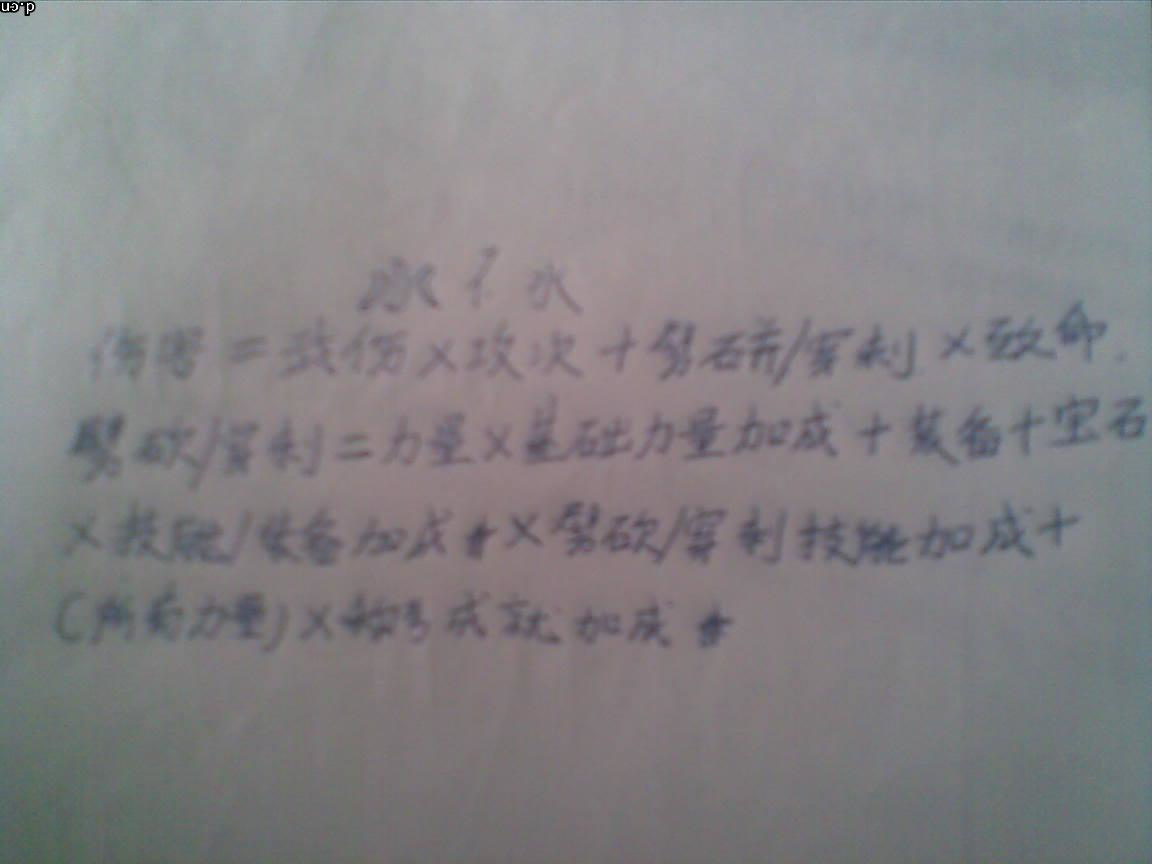 d.cn
水
伤害=致伤×攻次+劈砍/穿刺×致命.
劈砍/穿刺=力量×基础力量加成+装备+宝石
×技能/装备加成×劈砍/穿刺技能加成+
(所有力量)×称号成就加成